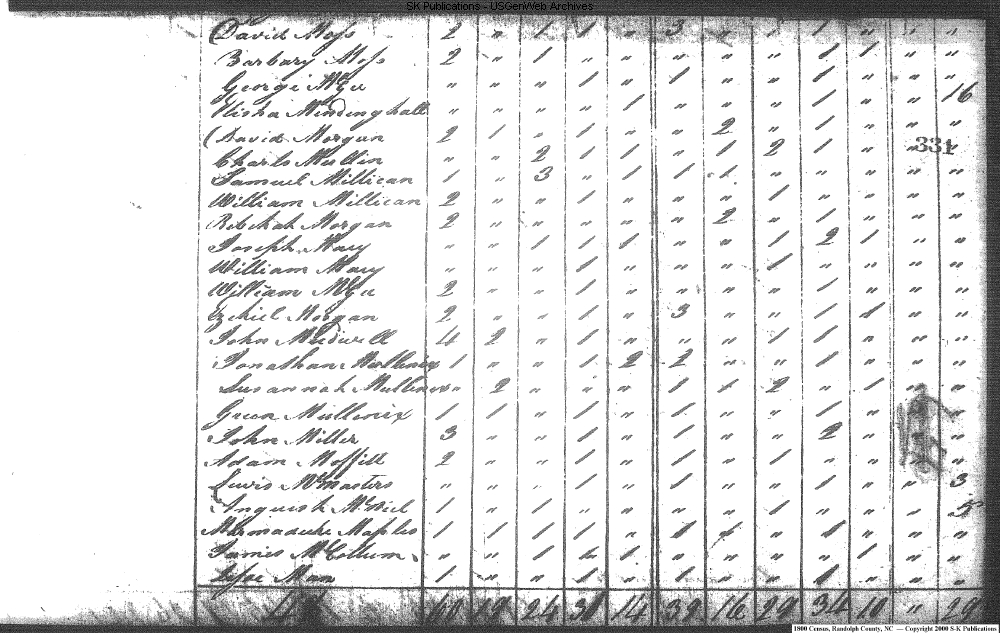 SK Publications - USGenWeb Archives
David Moss 2 " 1 1 " 3 " 1 1 " " "
Barbary Moss 2 " 1 " " " " " 1 1 " "
George McGee " " " 1 " 1 " " 1 " " 16
Elisha Mendinghall " " " " 1 " " " 1 " " "
David Morgan 2 1 " 1 " " 2 " 1 " " "
331
Charls Mullin " " 2 1 1 " 1 2 1 " " "
Samuel Millican 1 " 3 " 1 1 1 " " " " "
William Millican 2 " " 1 " " " 1 " " " "
Rebekah Morgan 2 " " " " " 2 " 1 " " "
Joseph Mary " " 1 1 1 " " 1 2 1 " "
William Mary " " " 1 " " " 1 " " " "
William McGee 2 " " 1 " " " " 1 " " "
Ezkiel Morgan 2 " " 1 " 3 " " 1 1 " "
John 4 2 " 1 " " " 1 1 " " "
Jonathan Mullenix 1 " " 1 2 2 " " 1 " " "
Susannah Mullenix " 2 " " " 1 1 2 " 1 " "
Green Mullenix 1 1 " 1 " 1 " " 1 " " "
John Miller 3 " " 1 " 1 " " 2 " " "
Adam Moffitt 2 " " 1 " 1 " 1 " " " "
Lewis McMasters " " " 1 " " " " 1 " " 3
1 " 1 " " " " 1 " " " 5
Marmaduke Maples 1 1 1 1 " 1 1 " 1 " " "
James McCollum " " 1 1 1 " " " " 1 " "
Man 1 " " 1 " 1 " " 1 " " "
60 19 24 31 14 39 16 29 34 10 " 29
1800 Census, Randolph County, NC — Copyright 2000 S-K Publications